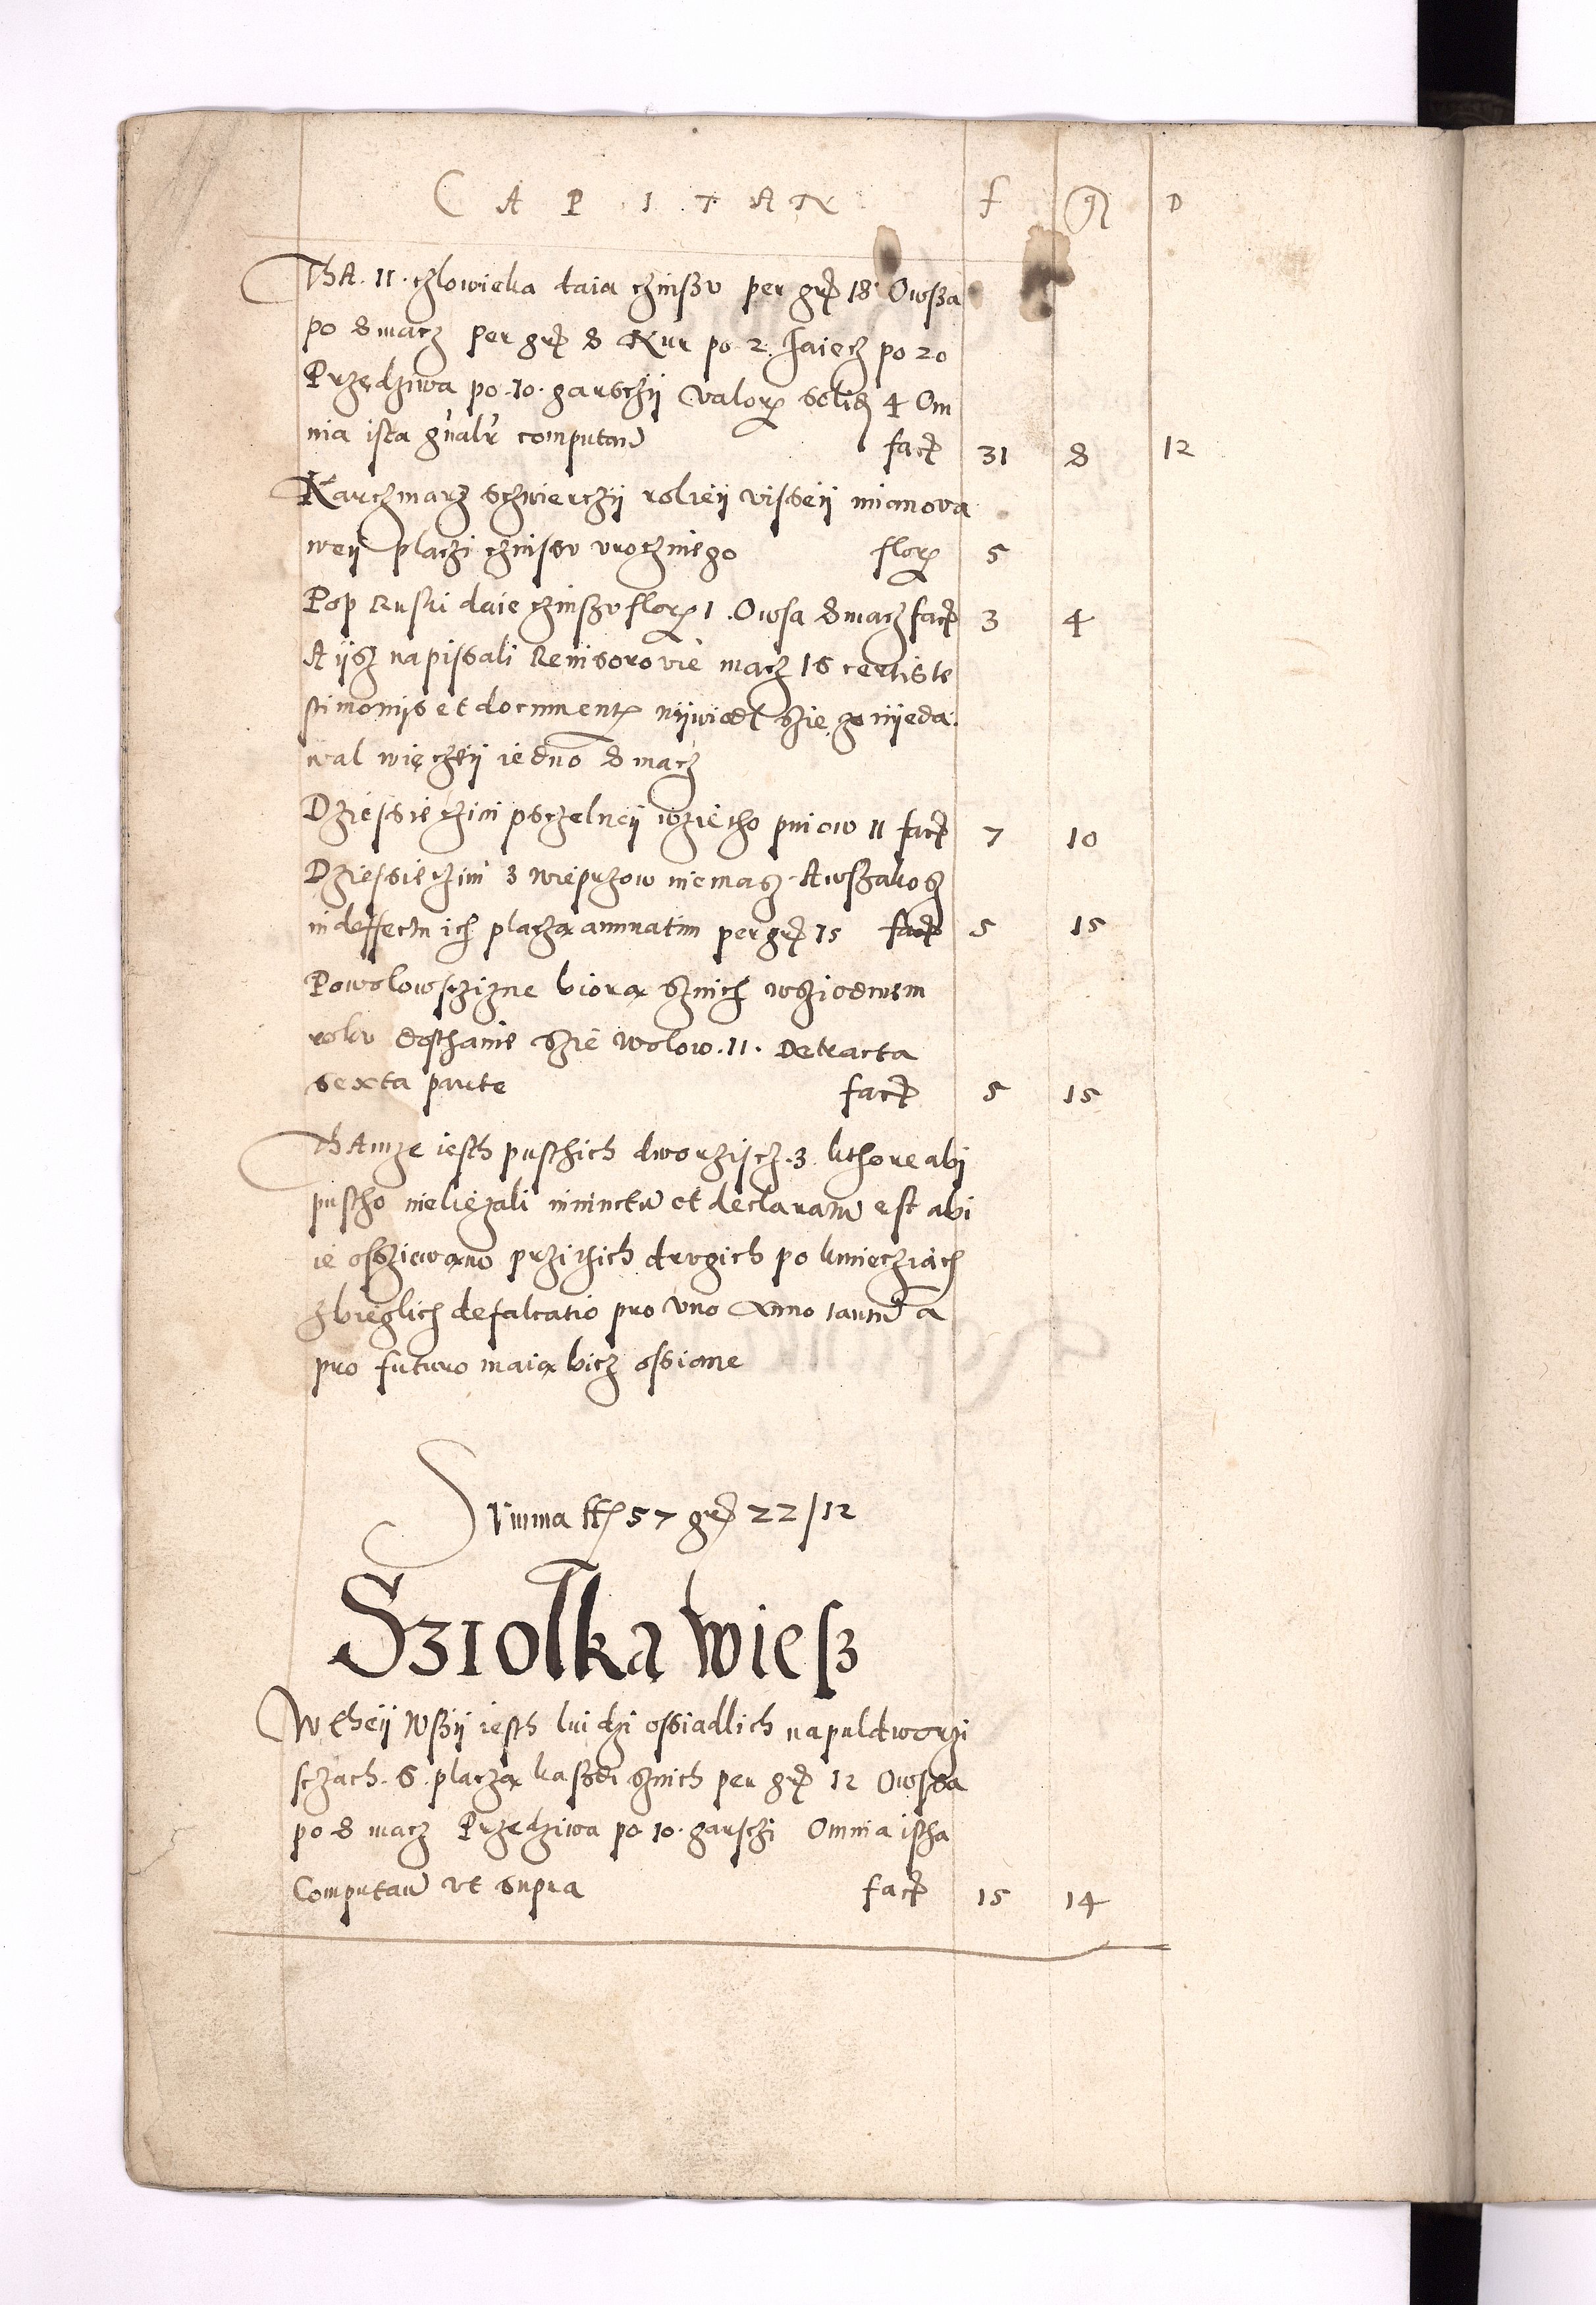 CAPITAN f gr D
Tha. 11. człowieka daia czinszv per gr 18 Owsza
po 8 macz per gr 8 Kur po 2. Jaiecz po 20
Przędziwa po. 10. garsczÿ valor solid 4 Om
nia ista gnalr computan fact 31 8 12
Karczmarz sczwierczÿ rolieÿ visseÿ mianova
neÿ placzi czinsv vrocznego flor 5
Pop Ruski daie czinszv flor 1. Owsa 8 macz fact 3 4
A ÿsz napissali Revisorovie macz 16 certis te
stimonÿs et document wÿwiodl szie ze nÿeda
wal więczeÿ iedno 8 macz
Dziessieczini psczelneÿ wzietho pniow 11 fact 7 10
Dziessieczini 3 wieprzow niemasz. Awszakosz
in deffectu ich placzą annuatim per gr 15 fact 5 15
Powolowsczizne biorą sznich wsziodmem
roku dosthanie szie wolow. 11. Detracta
sexta parte fact 5 15
Thamze iesth pusthich dworziscz. 3. kthore abi
pustho nieliezali iniunctu et declaratu est abi
ie ossziewano przi ich drugich po kmieczach
zbieglich defalcatio pro vno Anno tantu a
pro futuro maią bicz ossiane
Summa ff 57 gr 22/12
Sziolka wiesz
W theÿ wszÿ iesth luidzi ossiadlich na puldworzi
sczach. 6. placzą kaszdi sznich per gr 12 Owssa
po 8 macz Przedziwa po. 10. garsczi Omnia istha
Computan vt supra fact 15 14